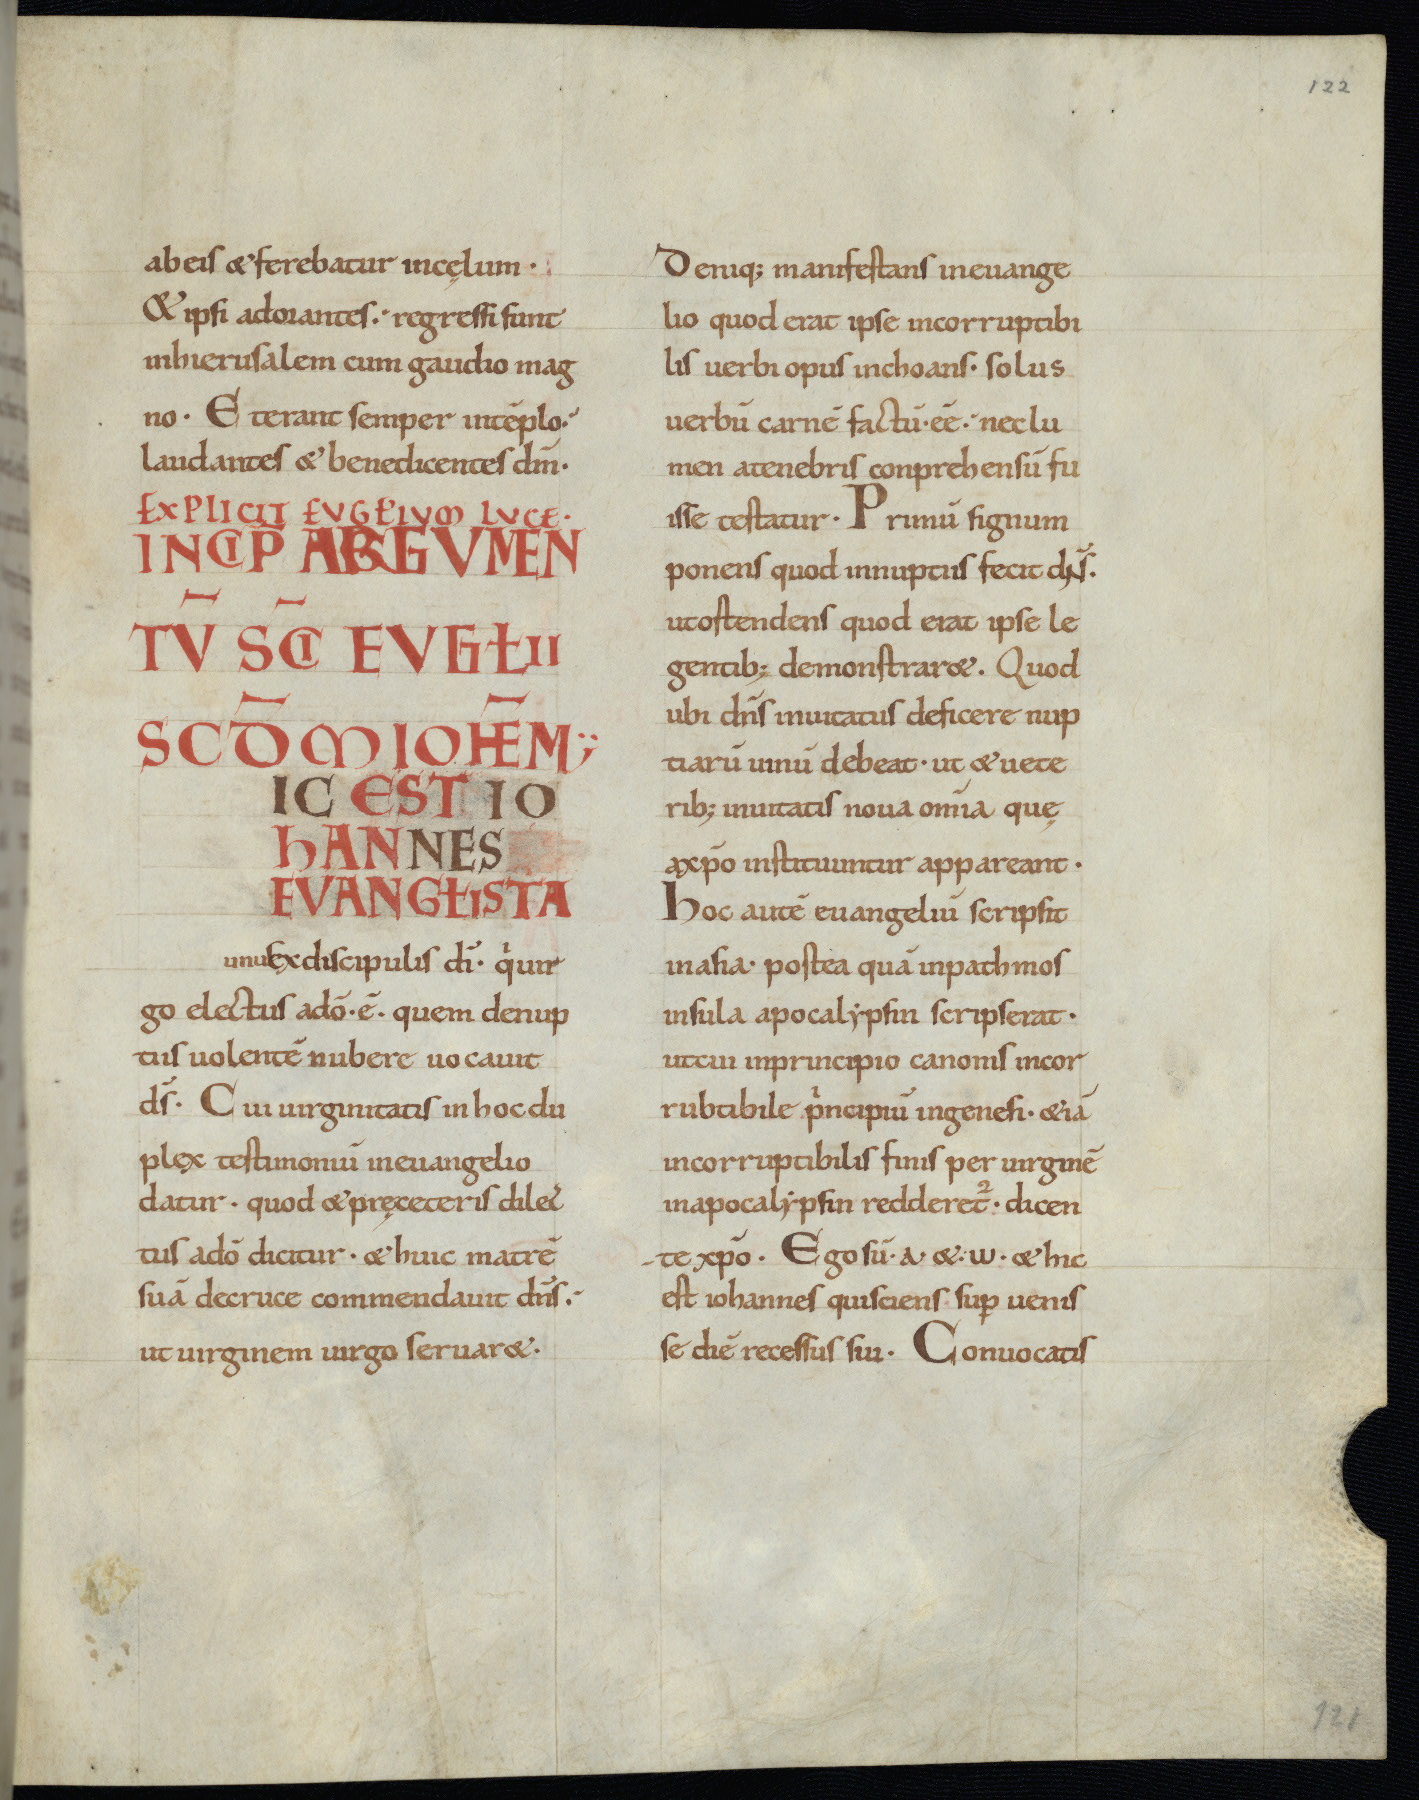 122
ab eis & ferebatur in cęlum ·
& ipsi adorantes · regressi sunt
in hierusalem cum gaudio mag
no · Et erant semper in tēplo ·
laudantes & benedicentes dm̄ ·
EXPLICIT EVGŁIVM LVCE ·
INCIP̄ ARGVMEN
TV̄ SC̄I EVGŁII
SCD̄M IOHĒM ;
IC EST IO
hANNES
EVANGŁISTA
unus ex discipulis dī · qui uir
go electus a dō · ē · quem de nup
tiis uolentē nubere uocauit
ds̄ · Cui uirginitatis in hoc du
plex testimoniū in euangelio
datur · quod & pręceteris dilec
tus a dō dicitur · & huic matrē
suā de cruce commendauit dn̄s ·
ut uirginem uirgo seruar& ·
Deniq; manifestans in euange
lio quod erat ipse incorruptibi
lis uerbi opus inchoans · solus
uerbū carnē factū · eē · nec lu
men a tenebris conprehensū fu
isse testatur · Primū signum
ponens quod in nuptiis fecit dn̄s ·
ut ostendens quod erat ipse le
gentib; demonstrar& · Quod
ubi dn̄s inuitatus deficere nup
tiarū uinū debeat · ut & uete
rib; inuitatis noua omīa quę
a xp̄o instituuntur appareant ·
hoc autē euangeliū scripsit
in asia · postea quā in pathmos
insula apocalypsin scripserat ·
ut cui in principio canonis incor
rubtibile principiū in genesi · & iā
incorruptibilis finis per uirginē
in apocalypsin redderet̄ · dicen
te xp̄o · Ego sū · A · & · ω · & hic
est iohannes qui sciens sup̄ uenis
se diē recessus sui · Conuocatis
121